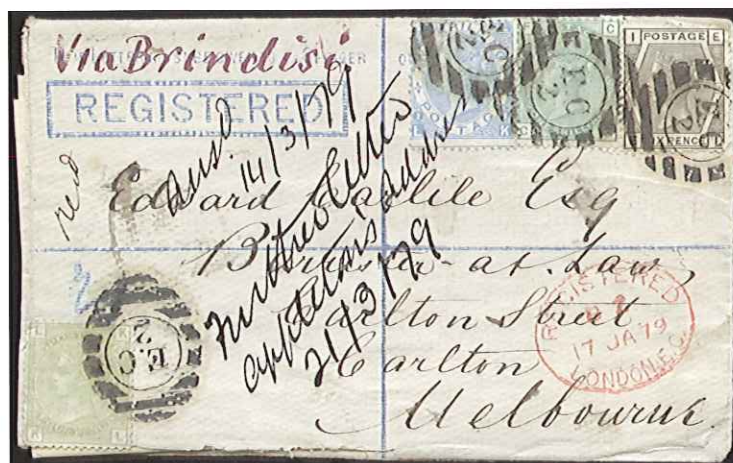 Via Brindisi
REGISTERED
I POSTAGE E
E.C
2
E.C
2
red
ansd
14/3/79
further letter
21/3/79
Edward Carlile Esq
Barrister-at-Law,
Carlton Street
Carlton
Melbourne.
2
E.C
2
REGISTERED
17 JA 79
LONDON.E.C.